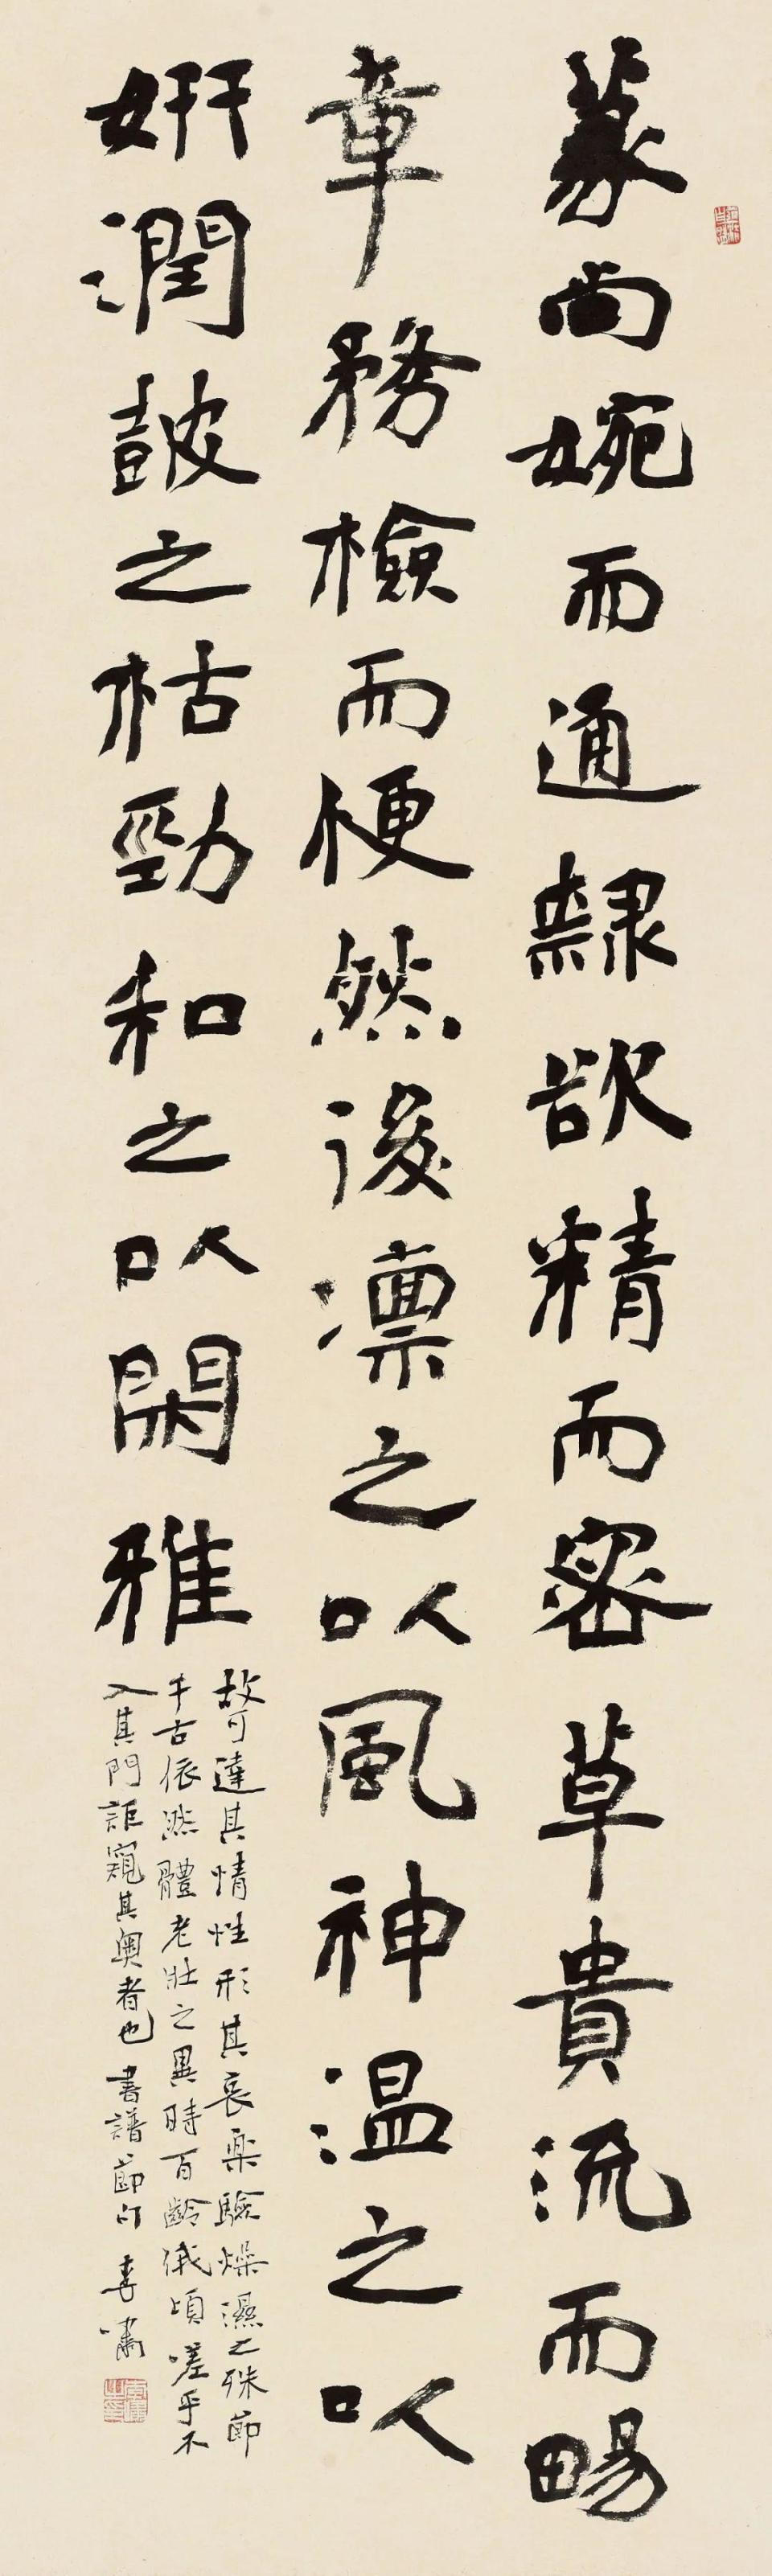 篆尚婉而通隸欲精而密草貴流而暢
章務檢而便然後凛之以風神温之以
妍潤鼓之枯勁和之以閑雅
故可達其情性形其哀樂驗燥濕之殊節
千古依然體老壯之異時百齡俄頃嗟乎不
入其門詎窺其奧者也 書譜節句 李嘯